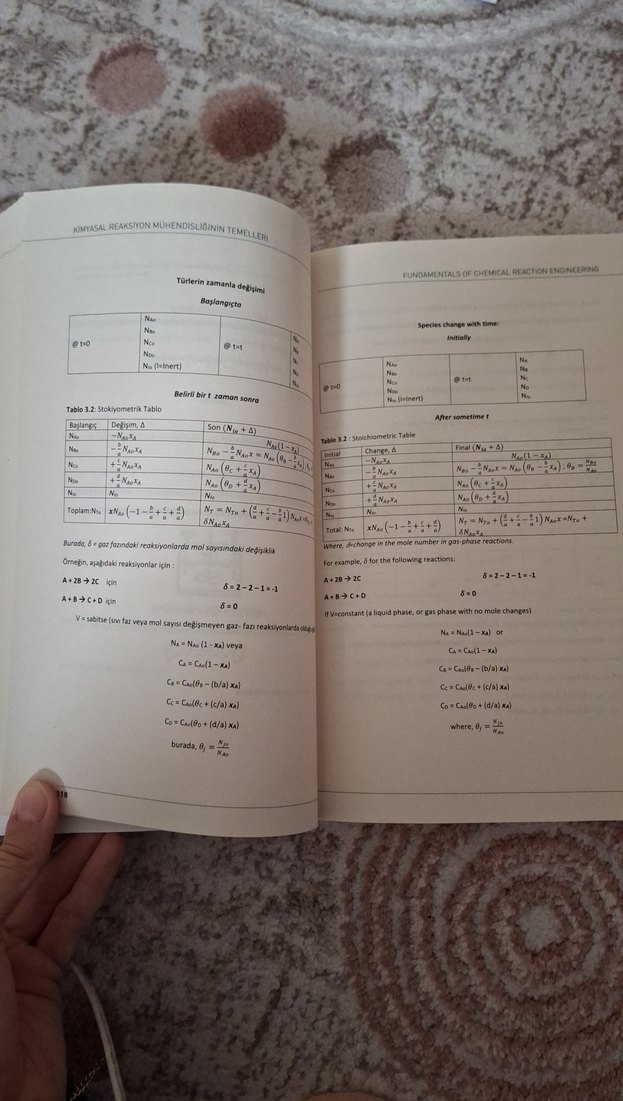 KİMYASAL REAKSİYON MÜHENDİSLİĞİNİN TEMELLERİ
Türlerin zamanla değişimi
Başlangıçta
@ t=0
N_A0
N_B0
N_C0
N_D0
N_I0 (I=Inert)
@ t=t
Belirli bir t zaman sonra
Tablo 3.2: Stokiyometrik Tablo
Başlangıç Değişim, Δ Son (N_i0 + Δ)
N_A0 −N_A0 x_A N_A0(1 − x_A)
N_B0 −b/a N_A0 x_A N_B0 − b/a N_A0 x = N_A0 (θ_B − b/a x_A)
N_C0 +c/a N_A0 x_A N_A0 (θ_C + c/a x_A)
N_D0 +d/a N_A0 x_A N_A0 (θ_D + d/a x_A)
N_I0 N_I0 N_I0
Toplam:N_T0 xN_A0 (−1 − b/a + c/a + d/a) N_T = N_T0 + (d/a + c/a − b/a 1) N_A0
δN_A0 x_A
Burada, δ = gaz fazındaki reaksiyonlarda mol sayısındaki değişiklik
Örneğin, aşağıdaki reaksiyonlar için :
A + 2B → 2C için δ = 2 – 2 – 1 = -1
A + B → C + D için δ = 0
V = sabitse (sıvı faz veya mol sayısı değişmeyen gaz- fazı reaksiyonlarda
N_A = N_A0 (1 - x_A) veya
C_A = C_A0(1 − x_A)
C_B = C_A0(θ_B – (b/a) x_A)
C_C = C_A0(θ_C + (c/a) x_A)
C_D = C_A0(θ_D + (d/a) x_A)
burada, θ_j = N_j0/N_A0
118
FUNDAMENTALS OF CHEMICAL REACTION ENGINEERING
Species change with time:
Initially
@ t=0
N_A0
N_B0
N_C0
N_D0
N_I0 (I=Inert)
@ t=t
N_A
N_B
N_C
N_D
N_I0
After sometime t
Table 3.2 : Stoichiometric Table
Initial Change, Δ Final (N_i0 + Δ)
N_A0 −N_A0 x_A N_A0(1 − x_A)
N_B0 −b/a N_A0 x_A N_B0 − b/a N_A0 x = N_A0 (θ_B − b/a x_A) ; θ_B = N_B0/N_A0
N_C0 +c/a N_A0 x_A N_A0 (θ_C + c/a x_A)
N_D0 +d/a N_A0 x_A N_A0 (θ_D + d/a x_A)
N_I0 N_I0 N_I0
Total: N_T0 xN_A0 (−1 − b/a + c/a + d/a) N_T = N_T0 + (d/a + c/a − b/a 1) N_A0 x =N_T0 +
δN_A0 x_A
Where, δ=change in the mole number in gas-phase reactions.
For example, δ for the following reactions:
A + 2B → 2C δ = 2 – 2 – 1 = -1
A + B → C + D δ = 0
If V=constant (a liquid phase, or gas phase with no mole changes)
N_A = N_A0(1 − x_A) or
C_A = C_A0(1 − x_A)
C_B = C_A0(θ_B – (b/a) x_A)
C_C = C_A0(θ_C + (c/a) x_A)
C_D = C_A0(θ_D + (d/a) x_A)
where, θ_j = N_j0/N_A0